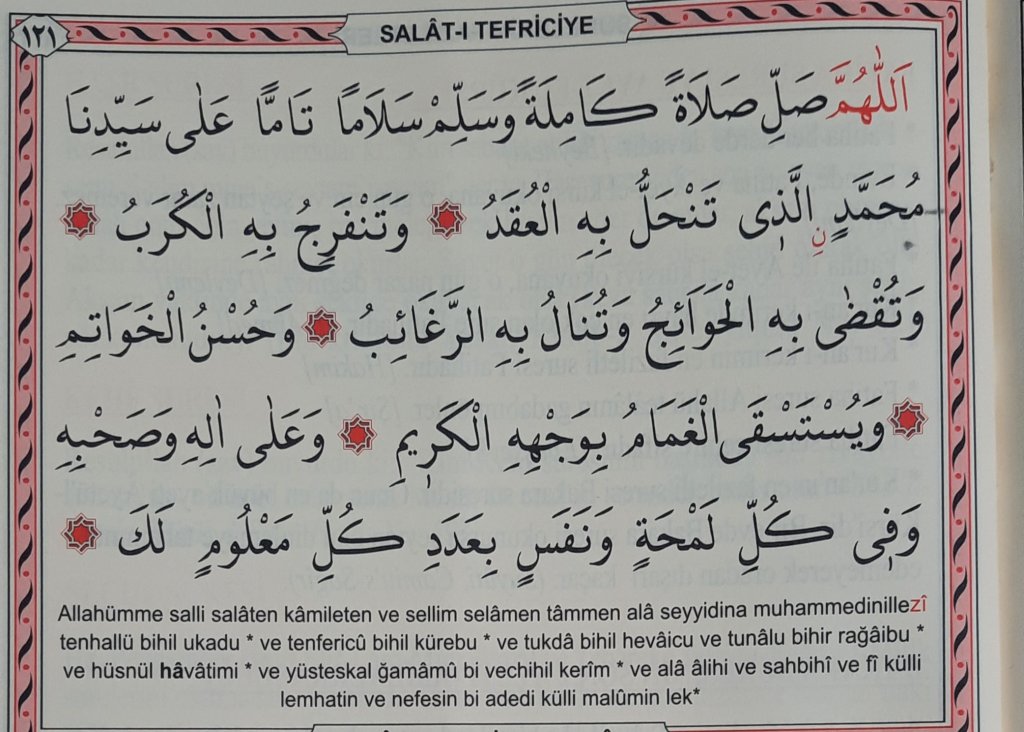 ١٢١
SALÂT-I TEFRİCİYE
اَللّٰهُمَّ صَلِّ صَلَاةً كَامِلَةً وَسَلِّمْ سَلَامًا تَامًّا عَلٰى سَيِّدِنَا
مُحَمَّدٍ نِ الَّذِى تَنْحَلُّ بِهِ الْعُقَدُ ۞ وَتَنْفَرِجُ بِهِ الْكُرَبُ ۞
وَتُقْضٰى بِهِ الْحَوَائِجُ وَتُنَالُ بِهِ الرَّغَائِبُ ۞ وَحُسْنُ الْخَوَاتِمِ
۞ وَيُسْتَسْقَى الْغَمَامُ بِوَجْهِهِ الْكَرِيمِ ۞ وَعَلٰى اٰلِهِ وَصَحْبِهِ
وَفِى كُلِّ لَمْحَةٍ وَنَفَسٍ بِعَدَدِ كُلِّ مَعْلُومٍ لَكَ ۞
Allahümme salli salâten kâmileten ve sellim selâmen tâmmen alâ seyyidina muhammedinillezî
tenhallü bihil ukadu * ve tenfericû bihil kürebu * ve tukdâ bihil hevâicu ve tunâlu bihir rağâibu *
ve hüsnül hâvâtimi * ve yüsteskal ğamâmû bi vechihil kerîm * ve alâ âlihi ve sahbihî ve fî külli
lemhatin ve nefesin bi adedi külli malûmin lek*